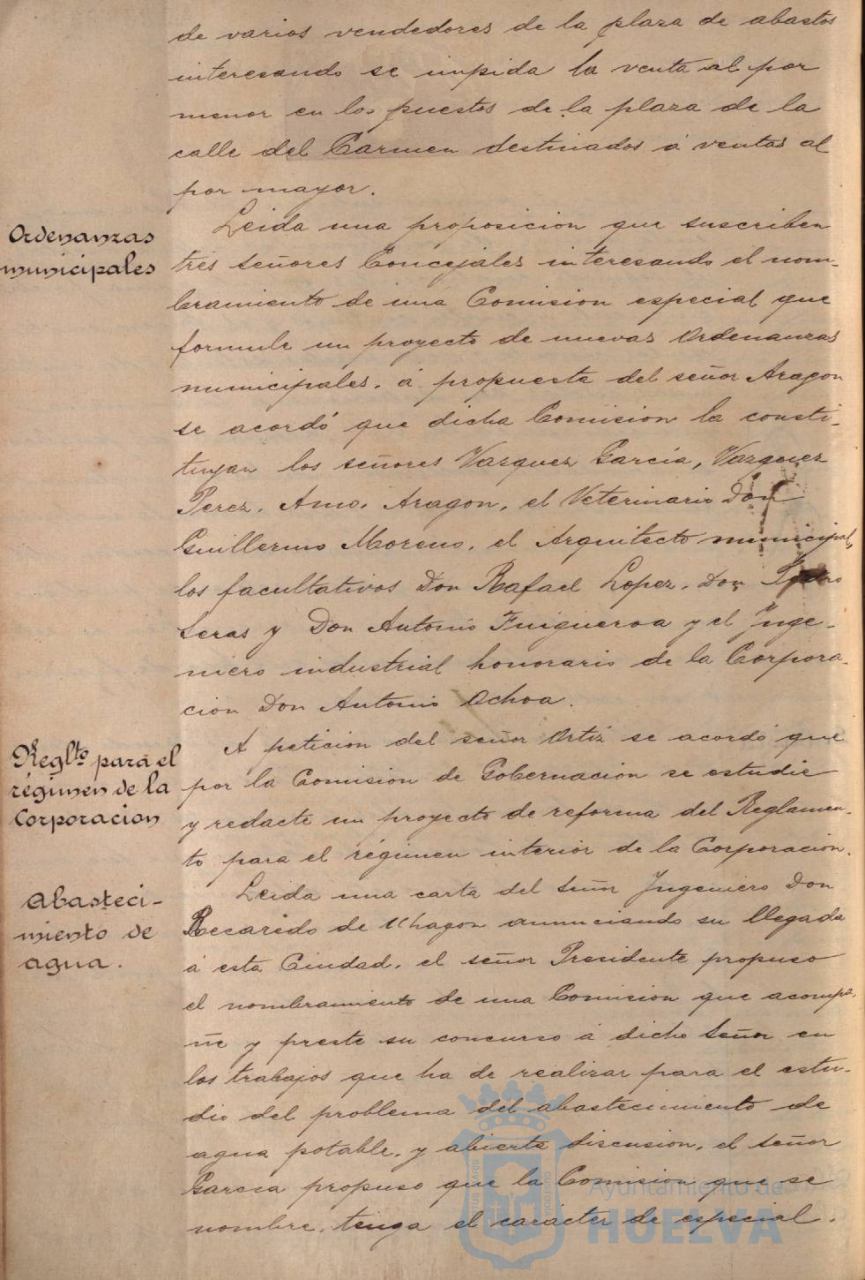 de varios vendedores de la plaza de abastos
interesando se impida la venta al por
menor en los puestos de la plaza de la
calle del Carmen destinados á ventas al
por mayor.
Ordenanzas
municipales
Leida una proposicion que suscriben
tres señores Concejales interesando el nom-
bramiento de una Comision especial que
formule un proyecto de nuevas Ordenanzas
municipales, á propuesta del señor Aragon
se acordó que dicha Comision la consti-
tuyan los señores Vazquez García, Vazquez
Perez, Amo, Aragon, el Veterinario Don
Guillermo Moreno, el Arquitecto municipal,
los facultativos Don Rafael Lopez, Don Pedro
Seras y Don Antonio Fuigueroa y el Inge-
niero industrial honorario de la Corpora-
cion Don Antonio Ochoa.
Reglto para el
régimen de la
Corporacion
A peticion del señor Ortiz se acordó que
por la Comision de Gobernacion se estudie
y redacte un proyecto de reforma del Reglamen-
to para el régimen interior de la Corporacion.
Abasteci-
miento de
agua.
Leida una carta del Señor Ingeniero Don
Recaredo de Uhagon anunciando su llegada
á esta Ciudad, el señor Presidente propuso
el nombramiento de una Comision que acompa-
ñe y preste su concurso á dicho Señor en
los trabajos que ha de realizar para el estu-
dio del problema del abastecimiento de
agua potable, y abierta discusion, el señor
Garcia propuso que la Comision que se
nombre, tenga el carácter de especial.
Ayuntamiento de
HUELVA